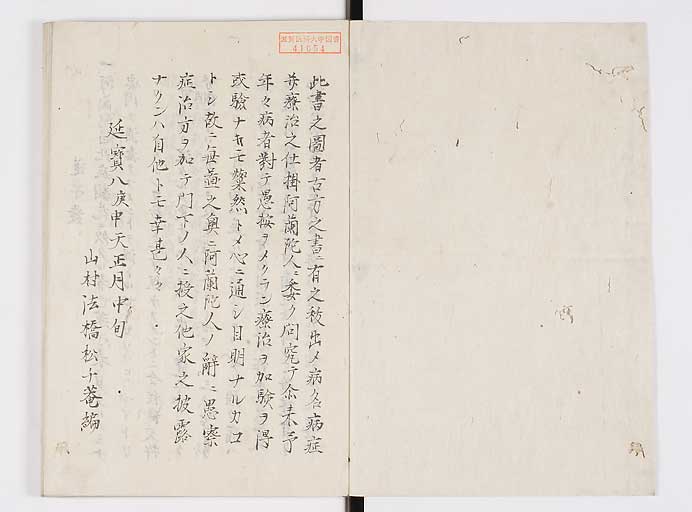 滋賀医科大学図書
41054
此書之圖者古方之書ニ有之秡出メ病名病症
并療治之仕掛阿蘭陀人ニ委ク问究テ余来予
年々病者對テ愚按ヲメクラシ療治ヲ加驗ヲ得
或驗ナキモ粲然トメ心ニ通シ目明ナルカコ
トシ故ニ毎益之奥ニ阿蘭陀人ノ辭ニ愚案
症治方ヲ加テ門下ノ人ニ授之他家之披露
ナクンハ自他トモ幸甚々々
延寳八庚申天正月中旬
山村法橋松十菴編